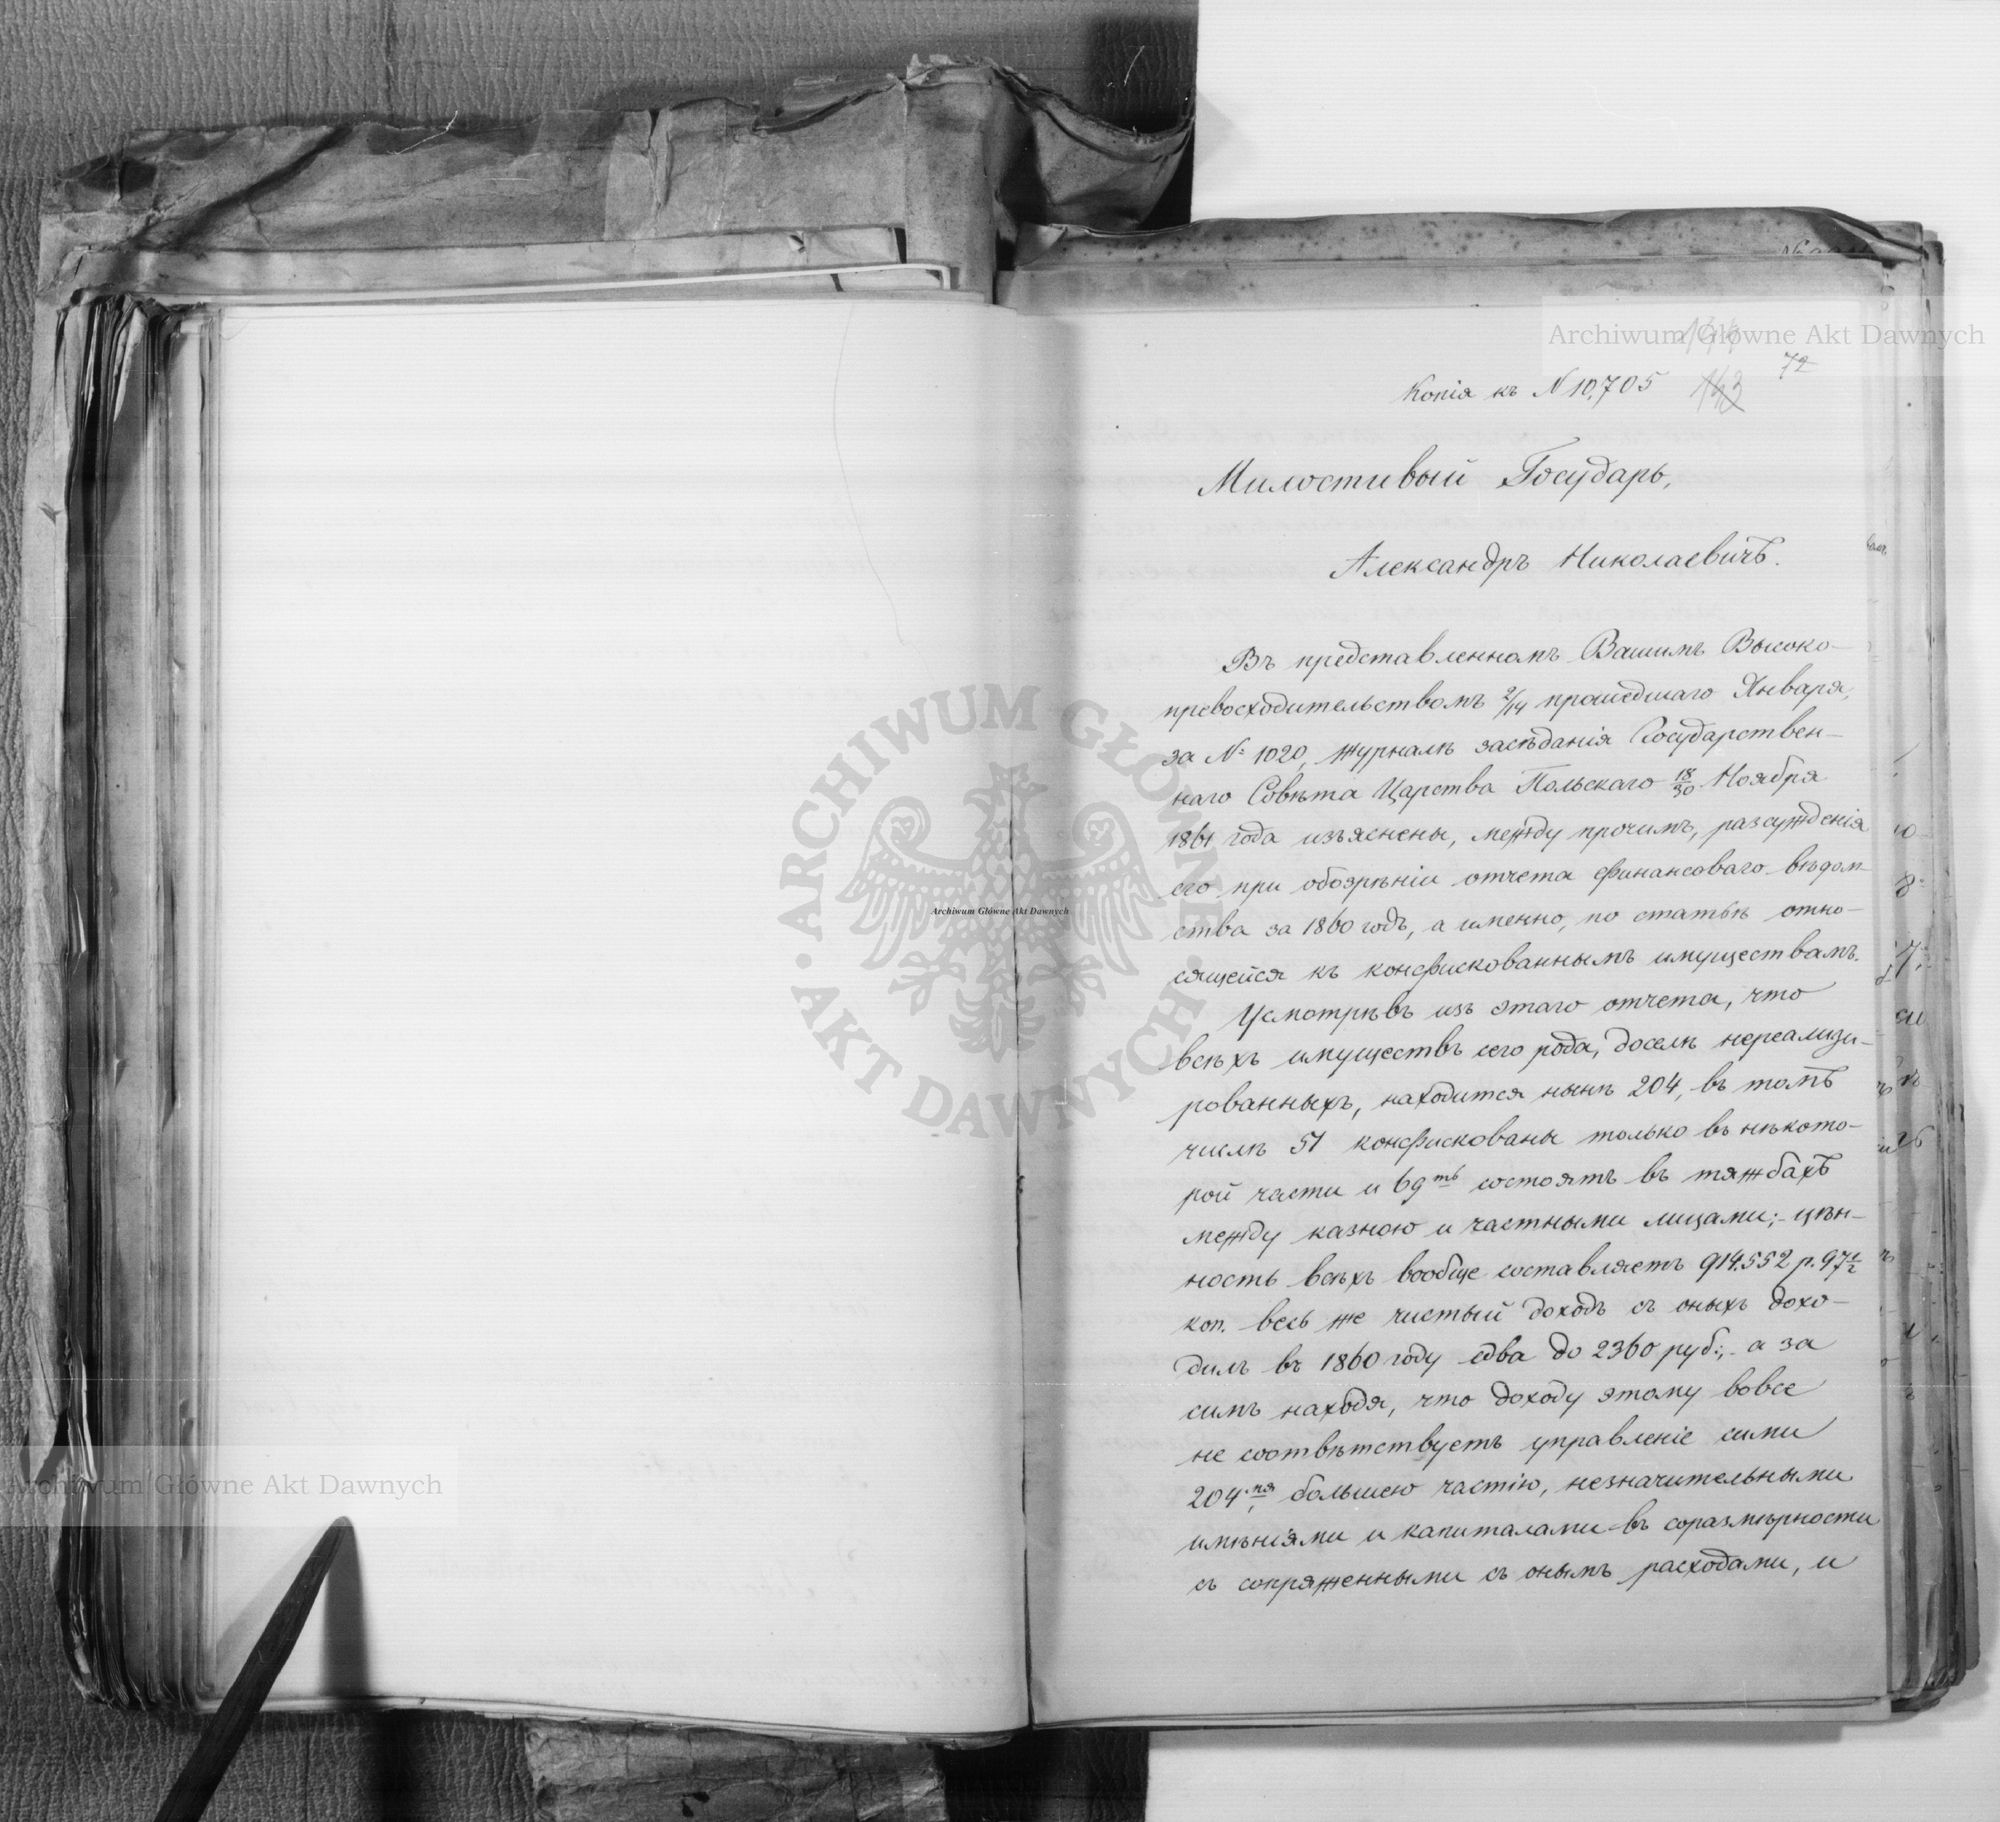 Archiwum Główne Akt Dawnych
72
Копія къ N 10,705 143
Милостивый Государь,
Александръ Николаевичъ.
Въ представленномъ Вашимъ Высоко-
превосходительствомъ 2/14 прошедшаго Января,
за № 1020, журналѣ засѣданія Государствен-
наго Совѣта Царства Польскаго 18/30 Ноября
1861 года изъяснены, между прочимъ, разсужденія
его при обозрѣніи отчета финансоваго вѣдом-
ства за 1860 годъ, а именно, по статьѣ отно-
сящейся къ конфискованнымъ имуществамъ.
Усмотрѣвъ изъ этаго отчета, что
всѣхъ имуществъ сего рода, доселѣ нереализи-
рованныхъ, находится нынѣ 204, въ томъ
числѣ 51 конфискованы только въ нѣкото-
рой части и 69ть состоятъ въ тяжбахъ
между казною и частными лицами;- цѣн-
ность всѣхъ вообще составляетъ 914.552 р. 97½
коп. весь же чистый доходъ съ оныхъ дохо-
дилъ въ 1860 году едва до 2360 руб:,- а за
симъ находя, что доходу этому вовсе
не соотвѣтствуетъ управленіе сими
204.мя, большею частію, незначительными
имѣніями и капиталами въ соразмѣрности
съ сопряженными съ онымъ расходами, и
ARCHIWUM GŁÓWNE AKT DAWNYCH
Archiwum Główne Akt Dawnych
Archiwum Główne Akt Dawnych